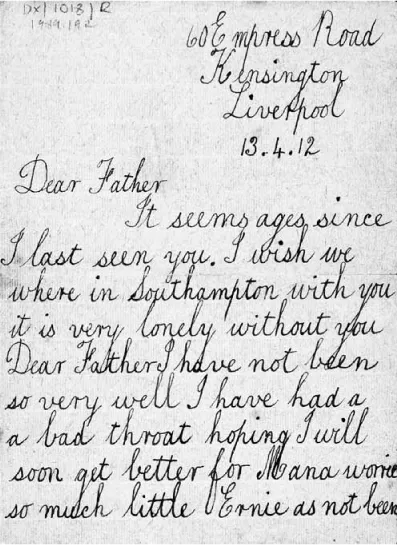 DX/1013/R
60 Empress Road
Kensington
Liverpool
13.4.12
Dear Father
It seems ages since
I last seen you. I wish we
where in Southampton with you
it is very lonely without you
Dear Father I have not been
so very well I have had a
a bad throat hoping I will
soon get better for Mana worrie
so much little Ernie as not been